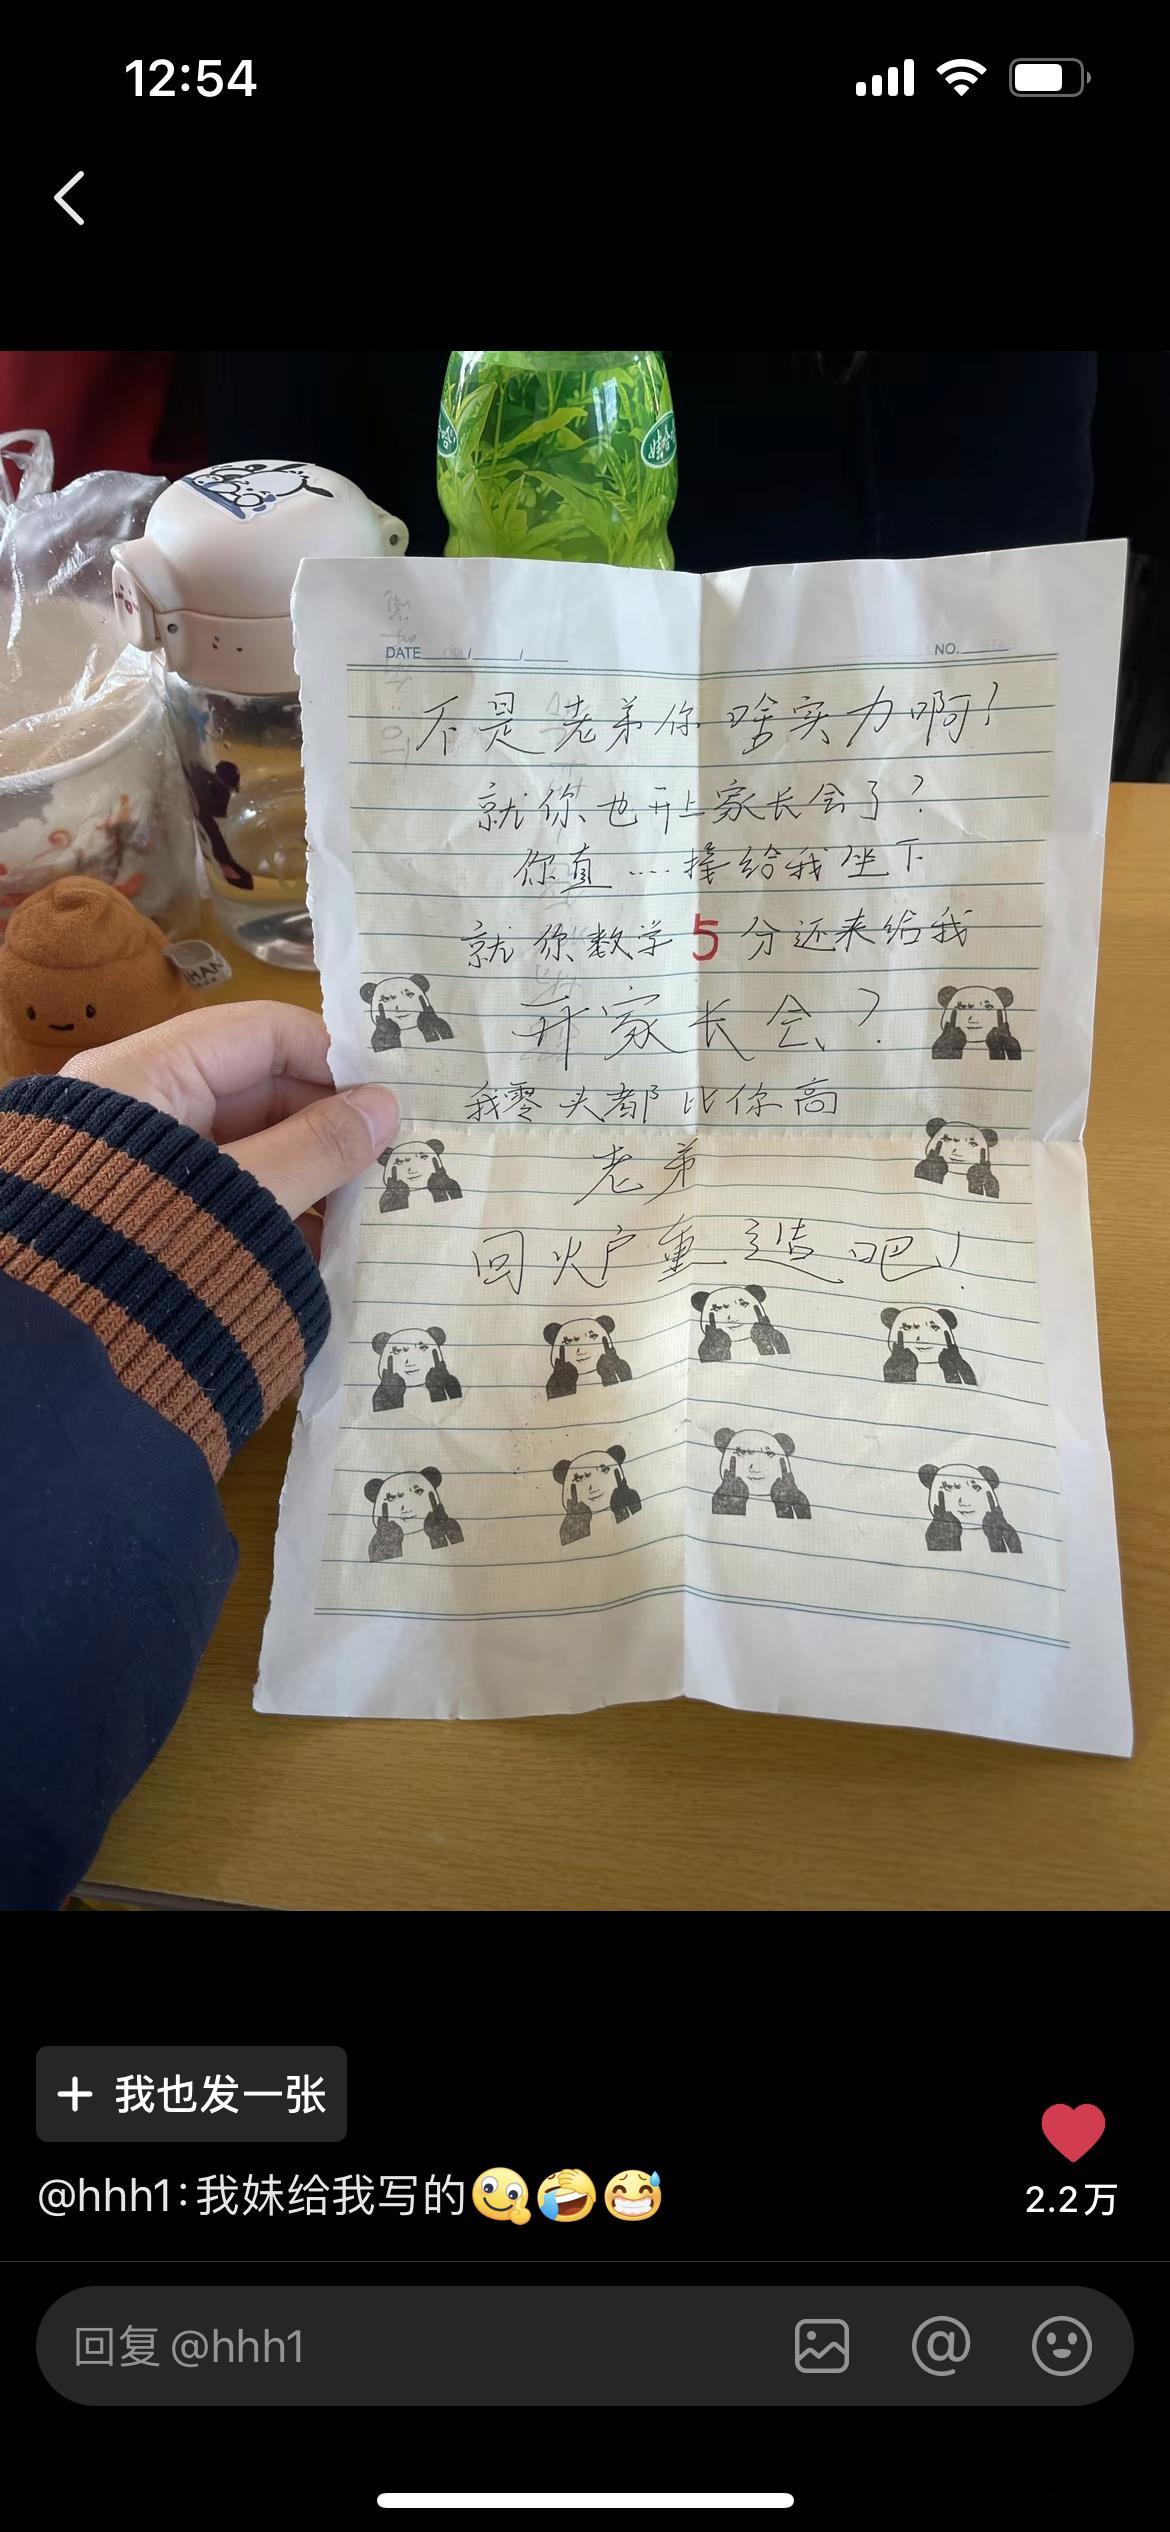 12:54
娃哈
DATE / /
NO.
不是老弟你啥实力啊！
就你也开上家长会了？
你真……擡给我坐下
就你数学5分还来给我
开家长会？
我零头都比你高
老弟
回火炉重造吧！
HAN
+ 我也发一张
@hhh1:我妹给我写的🫠🤣😅
2.2万
回复 @hhh1